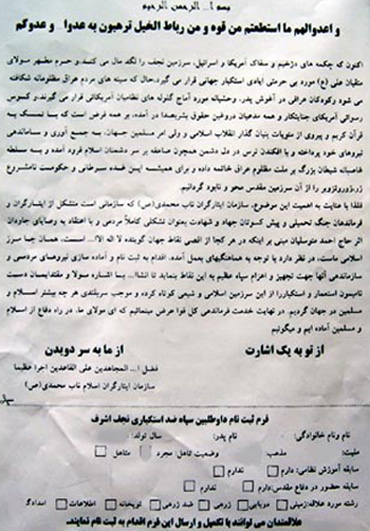 بسم ا... الرحمن الرحیم
و اعدوالهم ما استطعتم من قوه و من رباط الخیل ترهبون به عدوا... و عدوکم
اکنون که چکمه های دژخیم و سفاک آمریکا و اسرائیل، سرزمین نجف را لگد مال می کنند و حرم مطهر مولای
متقیان علی (ع) مورد بی حرمتی ایادی استکبار جهانی قرار می گیرد، حال که سینه های مردم عراق مظلومانه شکافته
می شود و کودکان عراقی در آغوش پدر، وحشیانه مورد آماج گلوله های نظامیان آمریکائی قرار می گیرند، و کوس
رسوائی آمریکای جنایتکار و همه مدعیان دروغین حقوق بشر بصدا در آمده، بر همه فرض است که با تمسک به
قرآن کریم و پیروی از منویات بنیان گذار انقلاب اسلامی و ولی امر مسلمین جهان، به جمع آوری و ساماندهی
نیروهای خود پرداخته و با افکندن ترس در دل دشمن همچون صاعقه بر سر دشمنان اسلام فرود آمده و به سلطه
غاصبانه شیطان بزرگ بر ملت مظلوم عراق خاتمه داده و برای همیشه این غده سرطانی و حکومت نامشروع
زر و زور و تزویر را از آن سرزمین مقدس محو و نابود گردانیم.
فلذا با عنایت به اهمیت این موضوع، سازمان ایثارگران ناب محمدی(ص) که سازمانی است متشکل از ایثارگران و
فرماندهان جنگ تحمیلی و پیش کسوتان جهاد و شهادت بعنوان تشکلی کاملاً مردمی و با اعتقاد به رضایای جاودان
اثر حاج احمد متوسلیان مبنی بر اینکه در هر کجا از اقصی نقاط جهان گوینده لا اله الا ا... است، همان جا مرز
اسلامی ماست، در نظر دارد با توجه به هماهنگیهای بعمل آمده، اقدام به ثبت نام و آماده سازی نیروهای مردمی و
سازماندهی آنها جهت تجهیز و اعزام سپاه عظیم به این نقاط بنماید تا انشاا... با اشاره مولا و مقتدایمان دست
استعمار و استکبار را از سرزمین اسلامی و شیعی کوتاه کرده و موجب سربلندی هر چه بیشتر اسلام و
مسلمین در جهان گردیم. در نهایت خدمت فرماندهی کل قوا عرض مینمائیم که ای مولای ما، در راه دفاع از اسلام
و مسلمین آماده ایم و میگوئیم
از تو به یک اشارت
از ما به سر دویدن
فضل ا... المجاهدین علی القاعدین اجرا عظیما
سازمان ایثارگران اسلام ناب محمدی(ص)
فرم ثبت نام داوطلبین سپاه ضد استکباری نجف اشرف
نام ونام خانوادگی: نام پدر: سال تولد:
ملیت: مذهب: وضعیت تاهل: مجرد متاهل
سابقه آموزش نظامی: دارم ندارم
سابقه حضور در دفاع مقدس: دارم ندارم
رشته مورد علاقه: زمینی دریایی زرهی ضد زرهی توپخانه اطلاعات امدادگر
علاقمندان می توانند با تکمیل و ارسال این فرم اقدام به ثبت نام نمایند.